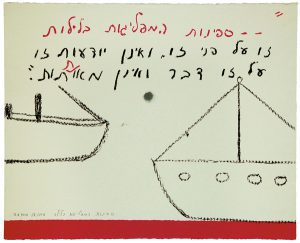 -- ספינות המפליגות בלילות
זו על פני זו, ואינן יודעות זו
על זו דבר ואינן מאותתות: